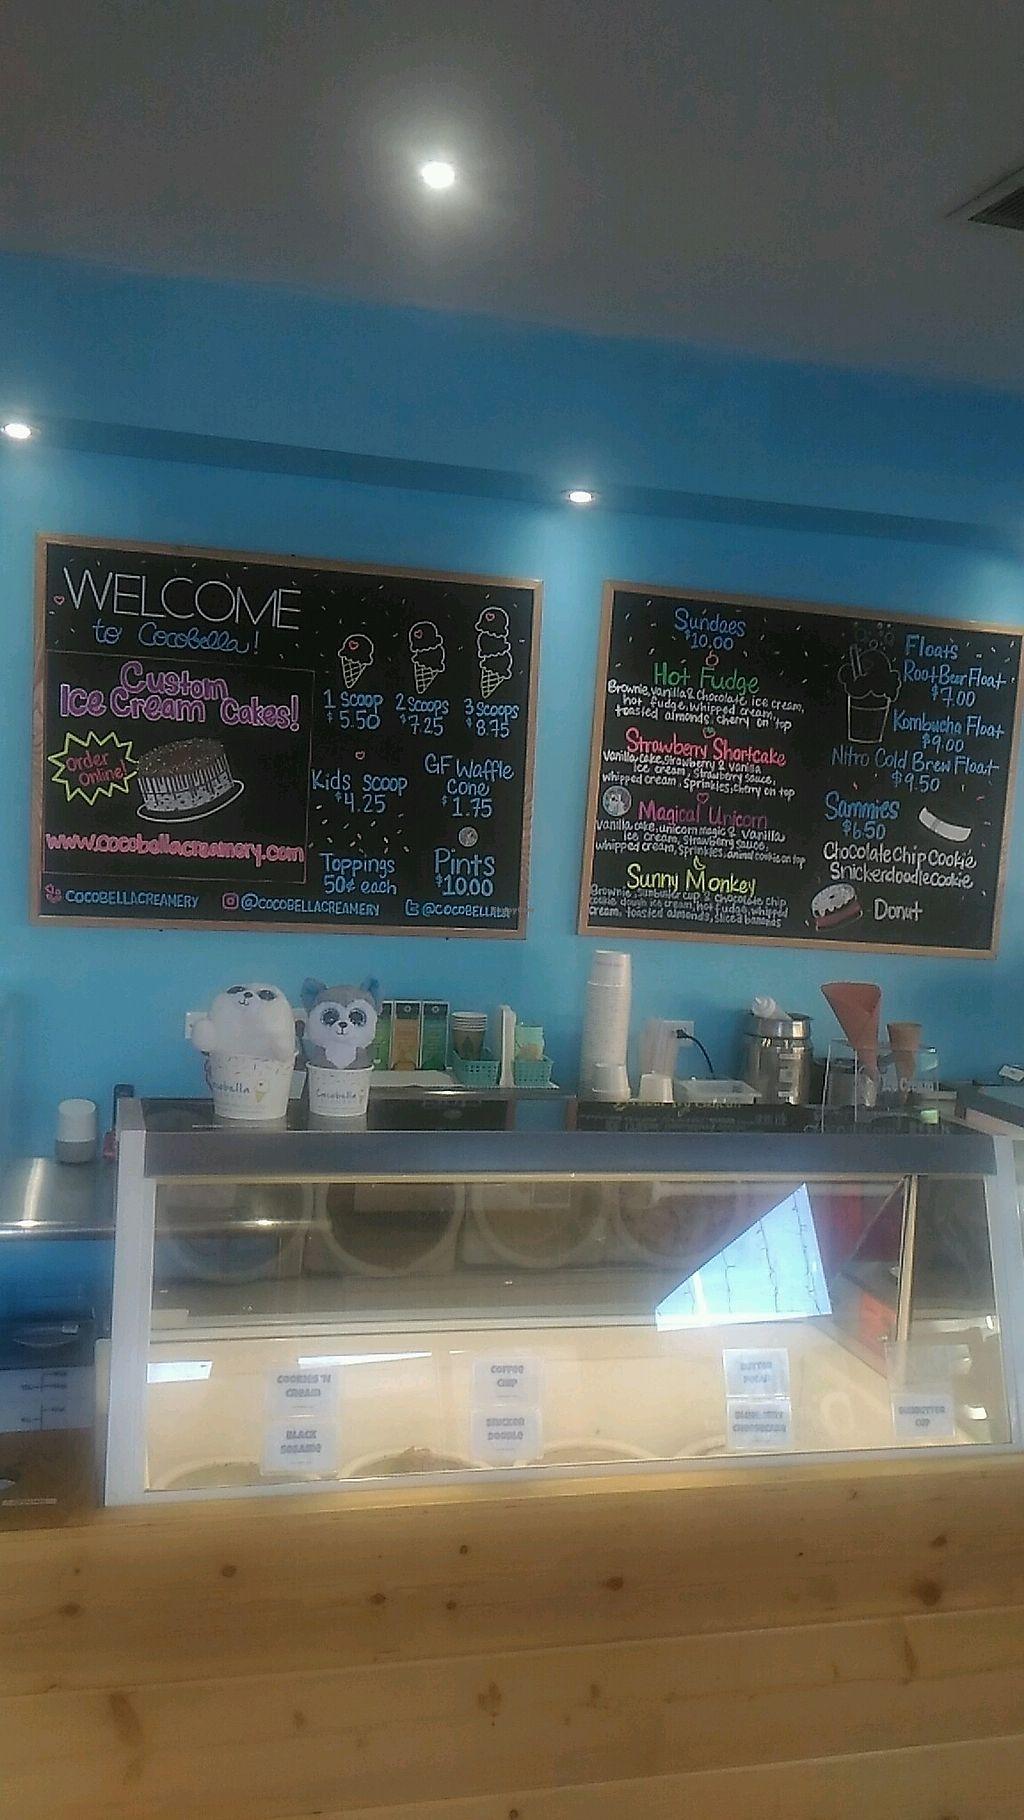 WELCOME
to CocoBella!
Custom
Ice Cream Cakes!
Order
Online!
www.cocobellacreamery.com
COCOBELLACREAMERY
@COCOBELLACREAMERY
@COCOBELLALA
1 Scoop
$5.50
2 Scoops
$7.25
3 Scoops
$8.75
Kids Scoop
$4.25
GF Waffle
Cone
$1.75
Toppings
50¢ each
Pints
$10.00
Sundaes
$10.00
Hot Fudge
Brownie, vanilla & chocolate, ice cream,
hot fudge, whipped cream,
toasted almonds, cherry on top
Strawberry Shortcake
Vanilla cake, strawberry & vanilla
ice cream, strawberry sauce,
whipped cream, sprinkles, cherry on top
Magical Unicorn
Vanilla cake, unicorn magic & vanilla
ice cream, strawberry sauce,
whipped cream, sprinkles, animal cookie on top
Sunny Monkey
Brownie, sunbutter cup & chocolate chip
cookie dough ice cream, hot fudge, whipped
cream, toasted almonds, sliced bananas
Floats
Root Beer Float
$7.00
Kombucha Float
$9.00
Nitro Cold Brew Float
$9.50
Sammies
$6.50
Chocolate Chip Cookie
Snickerdoodle Cookie
Donut
Cocobella
Cocobella
Ice Cream
COOKIES 'N
CREAM
BLACK
SESAME
COFFEE
CHIP
SNICKER
DOODLE
BUTTER
PECAN
BLUEBERRY
CHEESECAKE
SUNBUTTER
CUP